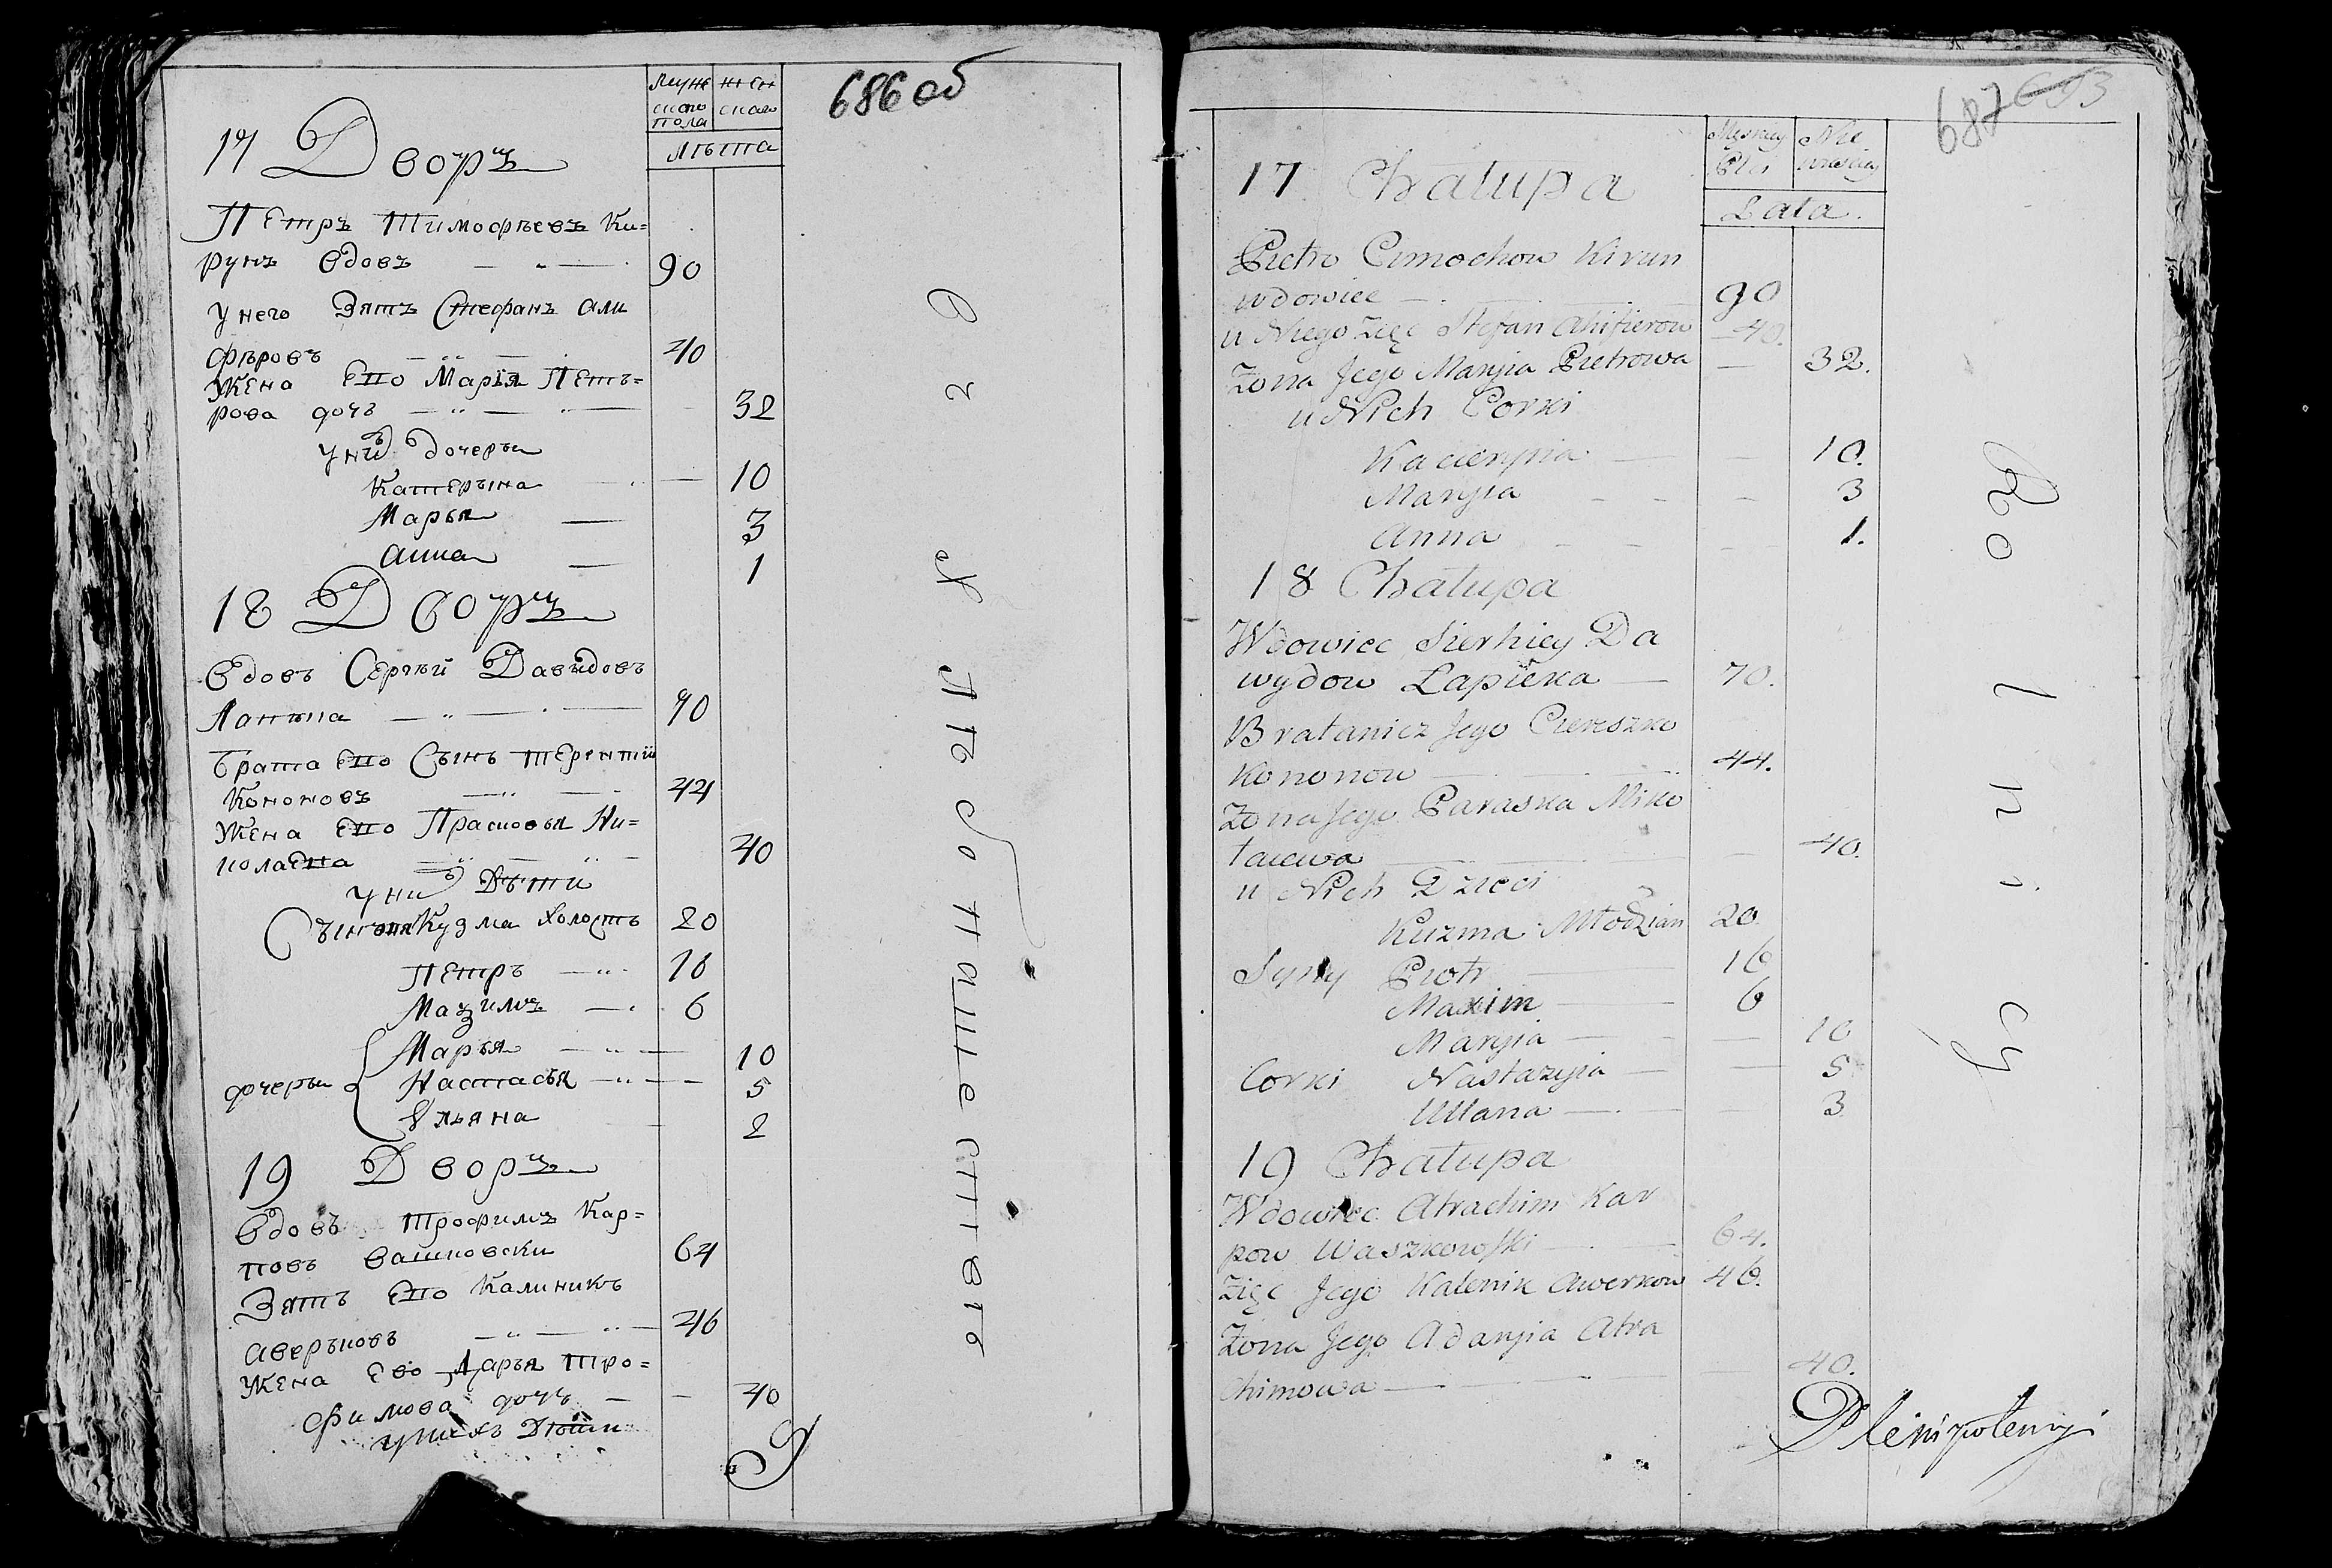 686 об
Мужескаго пола
женскаго
Лѣта
17 Дворъ
Петръ Тимофѣевъ Ки=
рунъ вдовъ 90
У него Зять Стефанъ Али
фѣровъ 40
Жена Его Марья Петъ=
рова дочъ 32
у них дочеры
Катерына 10
Марья 3
Анна 1
18 Дворъ
Вдовъ Сергѣй Давыдовъ
Лапъка 70
Брата Его Сынъ Терентий
Кононовъ 44
Жена Его Прасковья Ни=
колаевна 40
у них Дѣти
Сыновя Кузма холостъ 20
Петръ 16
Мазимъ 6
дочеры Марья 10
Настасья 5
Ульяна 2
19 Дворъ
Вдовъ Трофимъ Кар=
повъ Вашковски 64
Зять Его Калиникъ
Аверъковъ 46
Жена Ево Дарья Тро=
фимова дочъ 40
у них Дѣти
687 693
Męskiey Płci
Niewieściey
Lata.
17 Chałupa
Pietro Cimochow Kirun
wdowiec 90
u Niego Zięć Stefan Ahifierow 40.
Żona Jego Maryia Pietrowa 32.
u Nich Corki
Kacieryna 10.
Maryia 3
Anna 1.
18 Chałupa
Wdowiec Sierhiey Da
wydow Łapieka 70.
Brataniez Jego Ciereszko
Kononow 44.
Żona Jego Paraska Miko
łaiewa 40.
u Nich Dzieci
Kuzma Młodzian 20.
Syny Piotr 16
Maxim 6
Maryia 10
Corki Nastazyia 5
Ullana 3
19 Chałupa
Wdowiec Atrachim Kar
pow Waszkowski 64.
Zięć Jego Kalenik Awerkow 46.
Żona Jego Adaryia Atra
chimowa 40.
Plenipotency